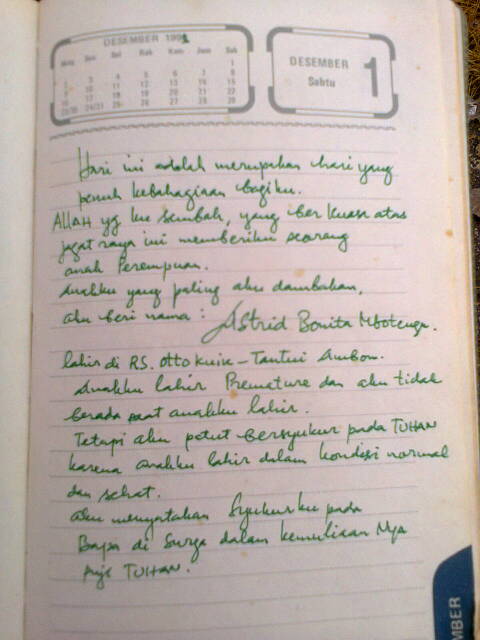 DESEMBER 1991
Ming Sen Sel Rab Kam Jum Sab
1
2 3 4 5 6 7 8
9 10 11 12 13 14 15
16 17 18 19 20 21 22
23/30 24/31 25 26 27 28 29
DESEMBER
Sabtu
1
Hari ini adalah merupakan hari yang
penuh kebahagiaan bagiku.
ALLAH yg ku sembah, yang ber kuasa atas
jagat raya ini memberiku seorang
anak Perempuan.
Anakku yang paling aku dambakan,
aku beri nama : Astrid Bonita Mbotenga.
lahir di RS. Otto Kuik - Tantui Ambon.
Anakku lahir Premature dan aku tidak
berada saat anakku lahir.
Tetapi aku patut bersyukur pada TUHAN
karena anakku lahir dalam kondisi normal
dan sehat.
aku menyatakan Syukurku pada
Bapa di Surga dalam kemuliaan Nya
Puji TUHAN.
MBER